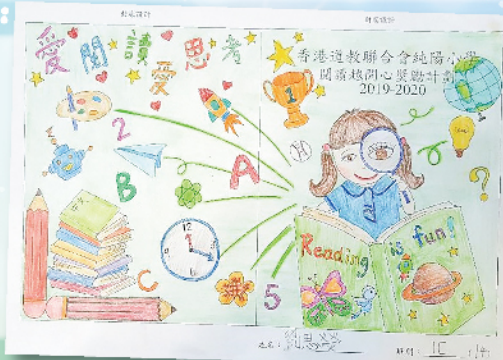 封底設計
封面設計
愛閱讀愛思考
香港道教聯合會純陽小學
閱讀越開心獎勵計劃
2019-2020
1
2
A
B
C
5
12
3
Reading is fun!
?
姓名：
班別：1E